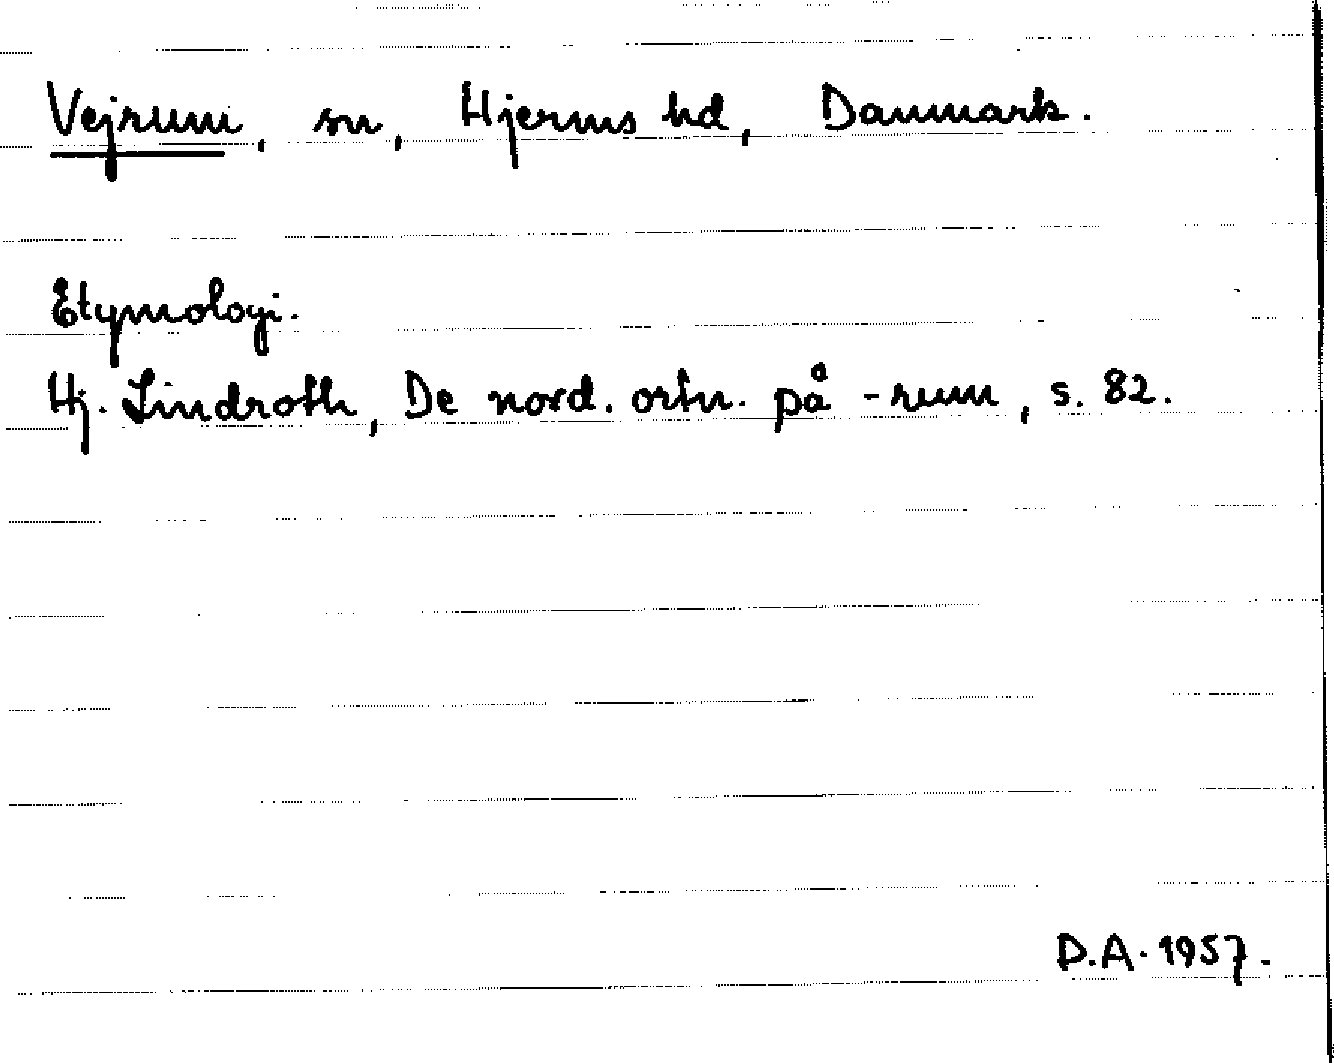 Vejrum, sn, Hjerms hd, Danmark.
Etymologi.
Hj. Lindroth, De nord. ortn. på -rum, s. 82.
D.A. 1957.